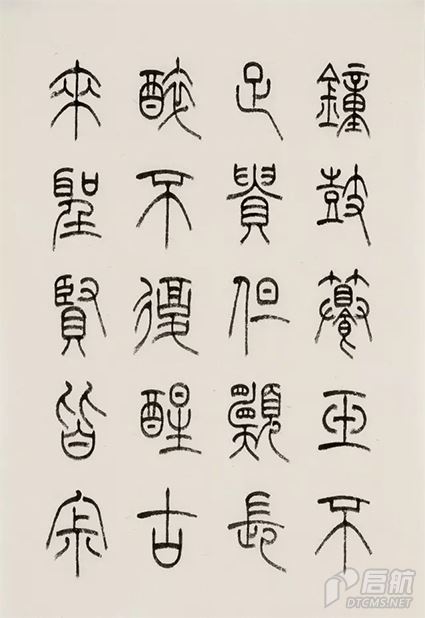 鐘鼓饌玉不
足貴但願長
醉不復醒古
來聖賢皆寂
启航
DTCMS.NET